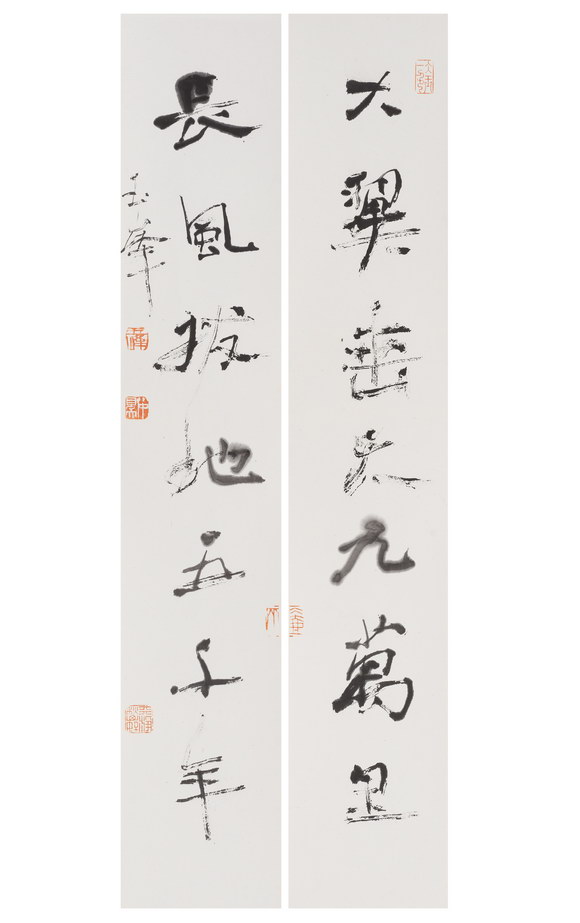 大翼垂天九萬里
長風拔地五千年